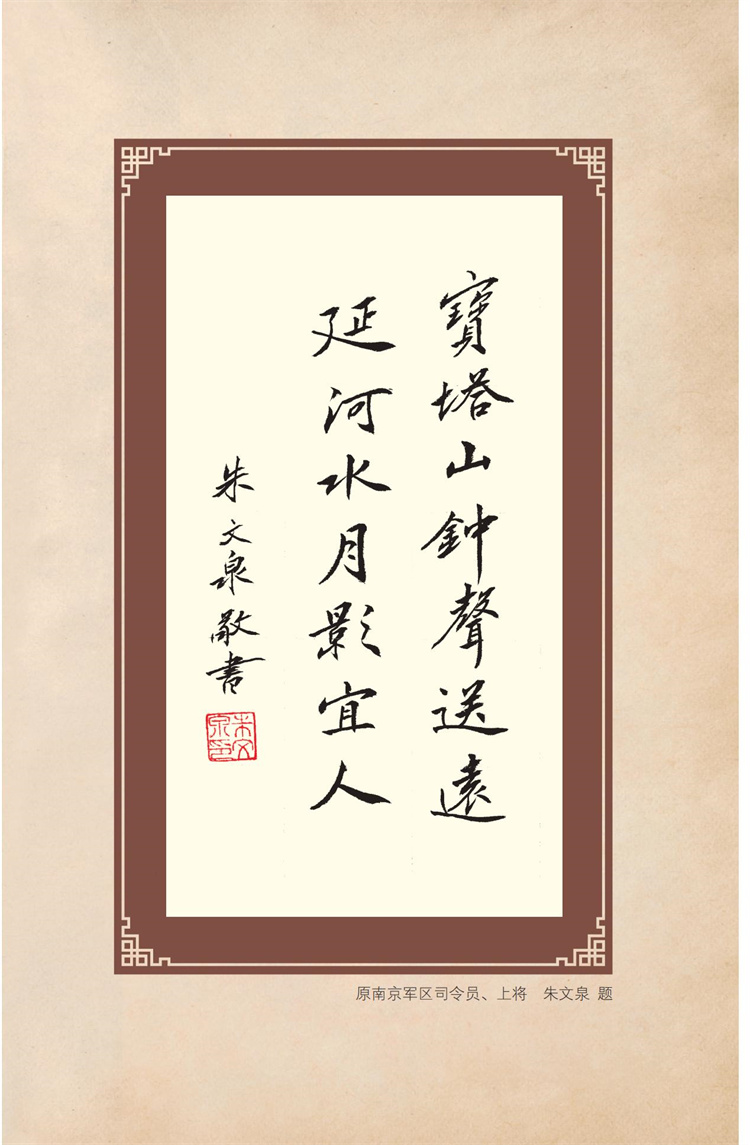 寶塔山鐘聲送遠
延河水月影宜人
朱文泉敬書
朱文泉印
原南京军区司令员、上将 朱文泉 题